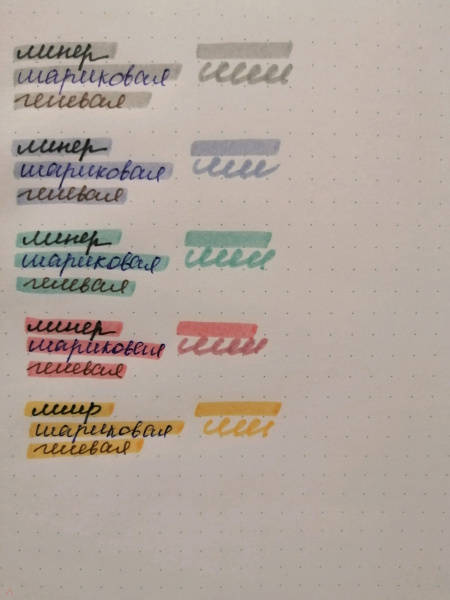 линер
шариковая
гелевая
линер
шариковая
гелевая
линер
шариковая
гелевая
линер
шариковая
гелевая
шариковая
гелевая